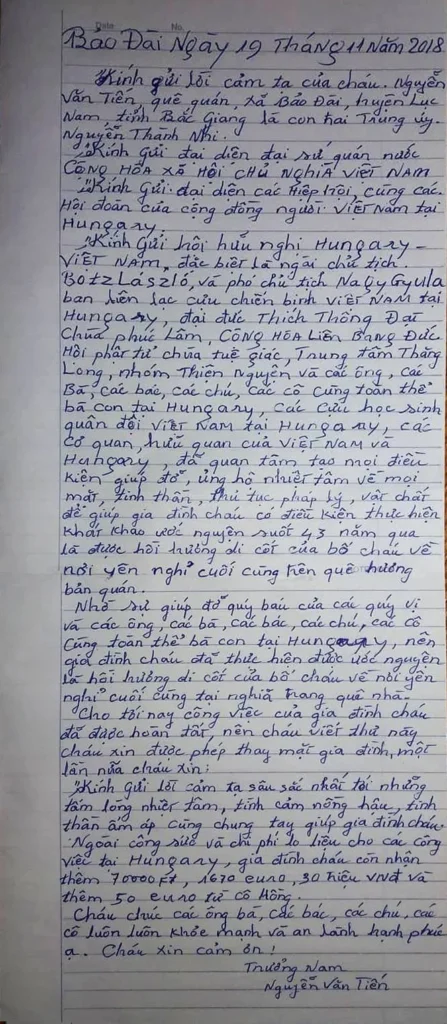 Date No.
Bảo Đài Ngày 19 Tháng 11 Năm 2018
"Kính gửi lời cảm tạ của cháu. Nguyễn
Văn Tiến, quê quán, xã Bảo Đài, huyện Lục
Nam, tỉnh Bắc Giang là con trai Trung úy.
Nguyễn Thành Nhi.
"Kính Gửi đại diện đại sứ quán nước
CỘNG HÒA XÃ HỘI CHỦ NGHĨA VIỆT NAM
"Kính Gửi: đại diện các Hiệp Hội, cùng các
Hội đoàn của cộng đồng người VIỆT NAM tại
Hungary.
"Kính Gửi hội hữu nghị Hungary –
VIỆT NAM, đặc biệt là ngài chủ tịch
Botz László, và phó chủ tịch Nagy Gyula
ban liên lạc cựu chiến binh VIỆT NAM tại
Hungary, đại đức Thích Thông Đạt
Chùa phúc Lâm, CỘNG HÒA LIÊN BANG ĐỨC.
Hội phật tử chùa tuệ giác, Trung tâm Thăng
Long, nhóm Thiện Nguyện và các ông, các
Bà, các bác, các chú, các cô cùng toàn thể
bà con tại Hungary, các cựu học sinh
quân đội VIỆT NAM tại Hungary, các
cơ quan, hữu quan của VIỆT NAM và
Hungary, đã quan tâm tạo mọi điều
kiện giúp đỡ, ủng hộ nhiệt tâm về mọi
mặt, tinh thần, thủ tục pháp lý, vật chất
để giúp gia đình cháu có điều kiện thực hiện
khát khao ước nguyện suốt 43 năm qua
là được hồi hương di cốt của bố cháu về
nơi yên nghỉ cuối cùng trên quê hương
bản quán.
Nhờ sự giúp đỡ quý báu của các quý vị
và các ông, các bà, các bác, các chú, các cô
cùng toàn thể bà con tại Hungary, nên
gia đình cháu đã thực hiện được ước nguyện
là hồi hương di cốt của bố cháu về nơi yên
nghỉ cuối cùng tại nghĩa trang quê nhà.
Cho tới nay công việc của gia đình cháu
đã được hoàn tất, nên cháu viết thư này
cháu xin được phép thay mặt gia đình, một
lần nữa cháu xin:
"Kính gửi lời cảm tạ sâu sắc nhất tới những
tấm lòng nhiệt tâm, tình cảm nồng hậu, tinh
thần ấm áp cùng chung tay giúp gia đình cháu.
Ngoài công sức và chi phí lo liệu cho các công
việc tại Hungary, gia đình cháu còn nhận
thêm 70000 Ft, 1670 euro, 30 triệu VNĐ và
thêm 50 euro từ cô Hồng.
Cháu chúc các ông bà, các bác, các chú, các
cô luôn luôn khỏe mạnh và an lành hạnh phúc
ạ. Cháu xin cảm ơn!
Trưởng Nam
Nguyễn Văn Tiến